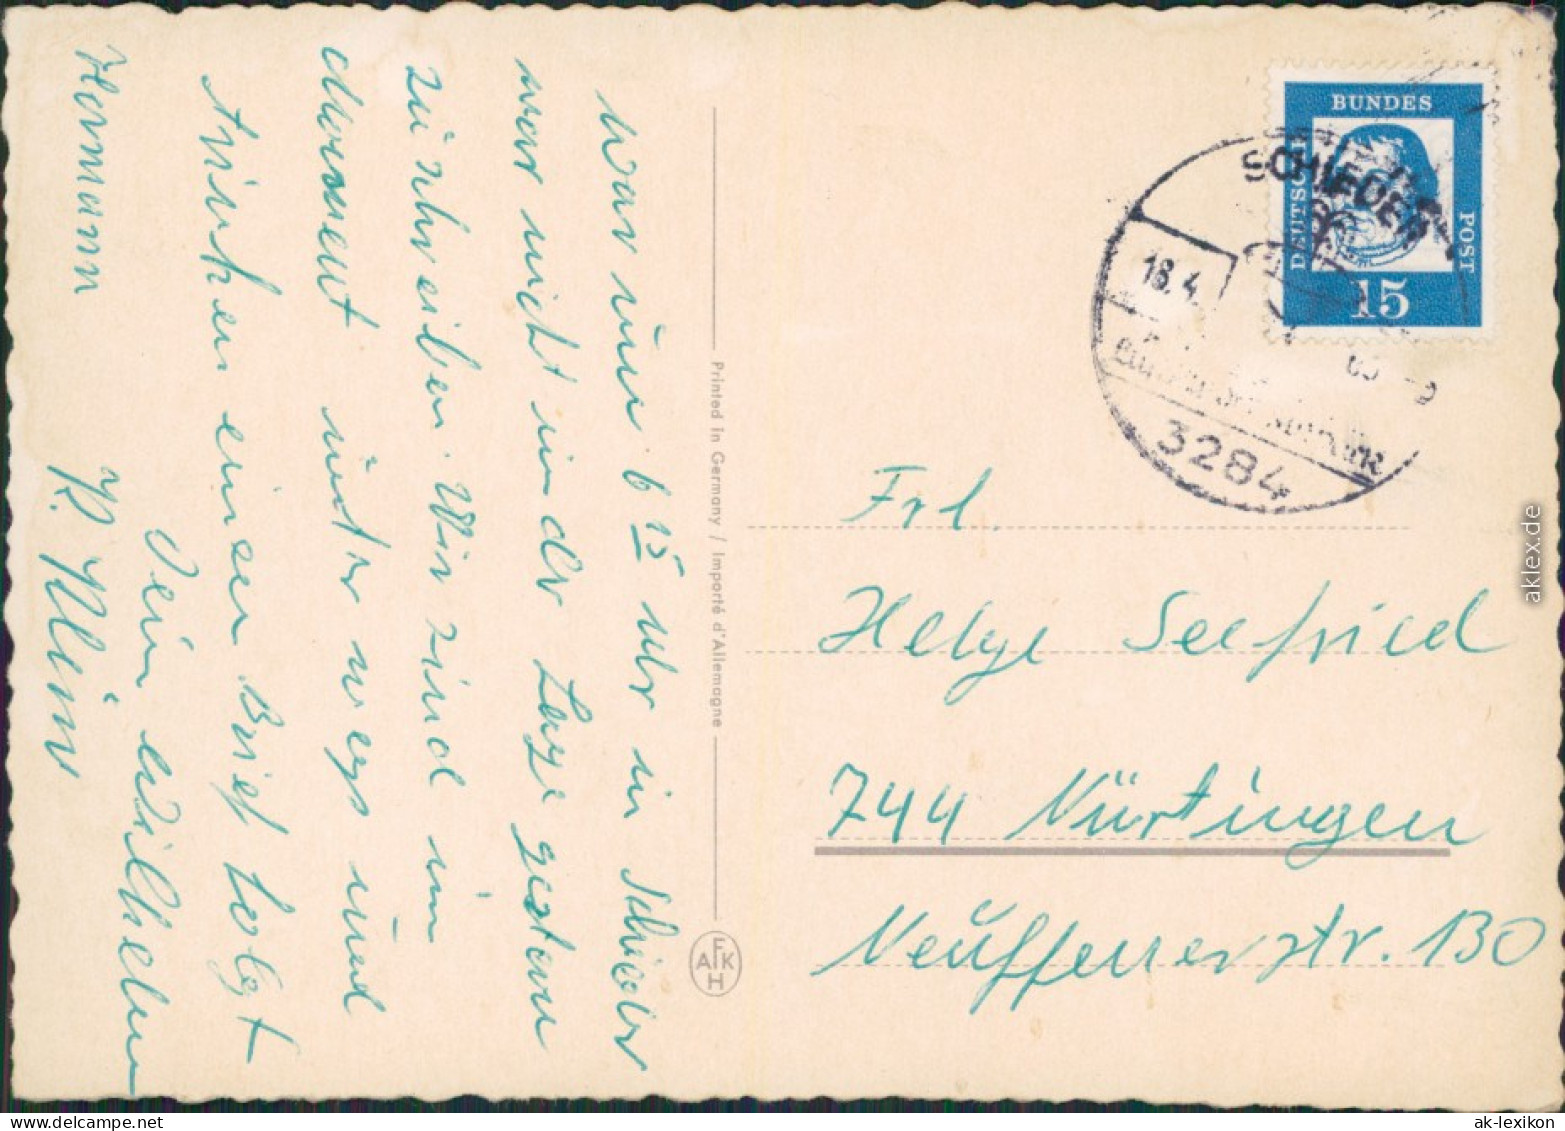 war um 6 15 uhr in Schieder
war nicht in der Lage gestern
zu schreiben. Wir sind im
Moment unterwegs und
trinken einen Brief folgt
Dein
Hermann
K. Klein
Printed in Germany / Importé d'Allemagne
EAKH
BUNDES
DEUTSCHE
POST
15
SCHIEDER
18.4.
3284
Frl.
Helge Seefried
744 Nürtingen
Neuffenerstr. 130
aklex.de
ak-lexikon